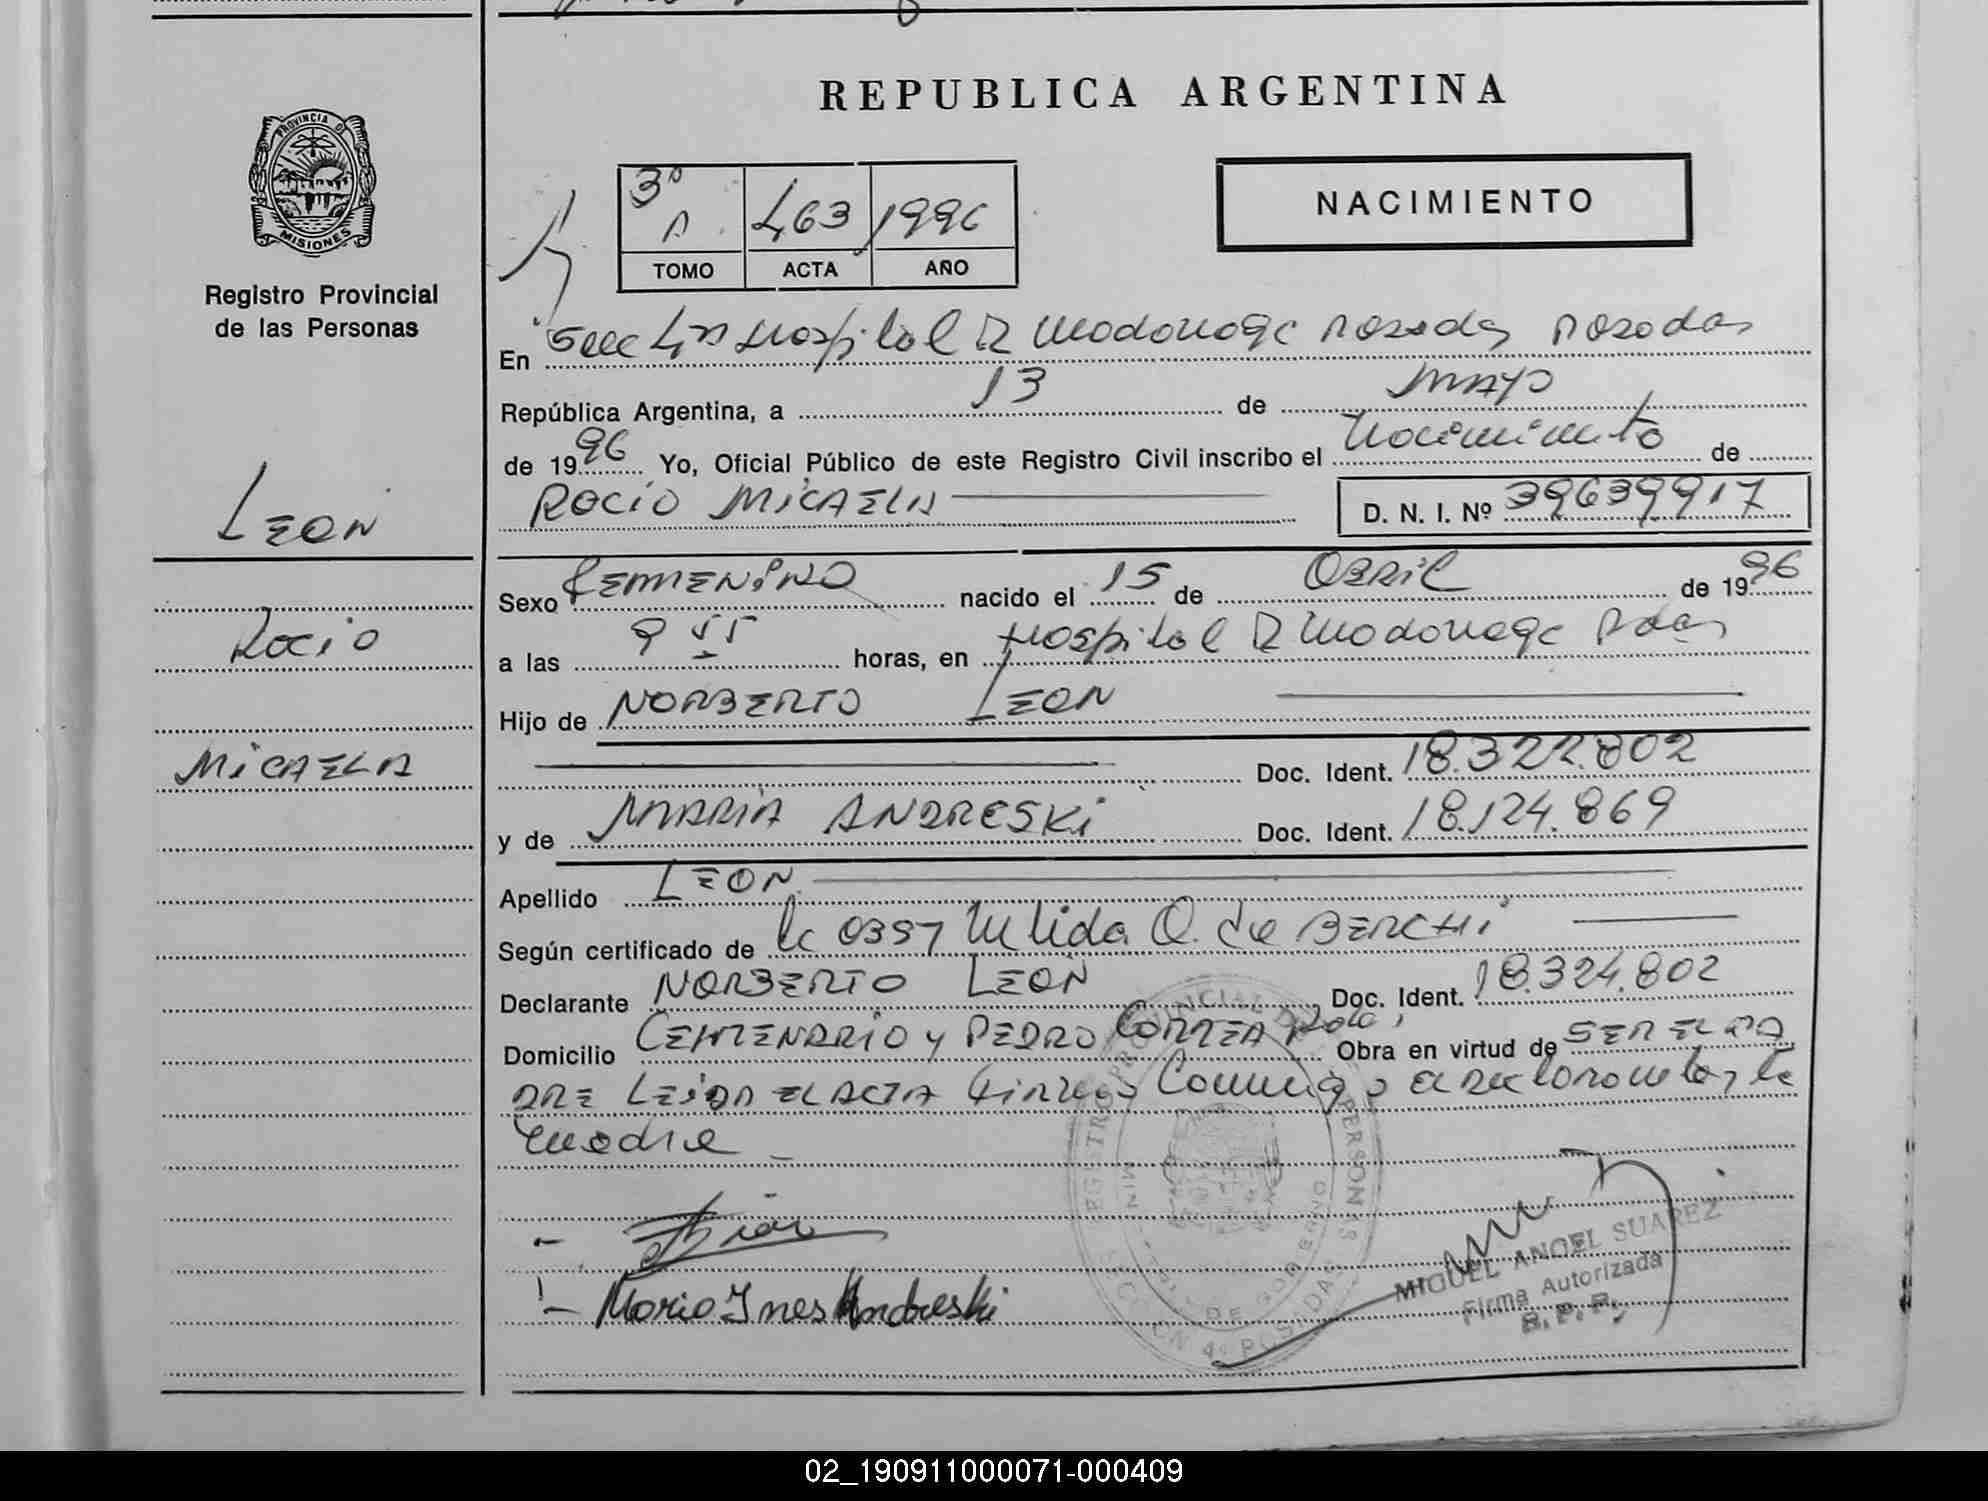 REPUBLICA ARGENTINA
PROVINCIA DE
MISIONES
Registro Provincial
de las Personas
3º
A
463
1996
TOMO
ACTA
AÑO
NACIMIENTO
En Secc 4ta Hospital R Madariaga Posadas Posadas
República Argentina, a 13 de MAYO
de 1996 Yo, Oficial Público de este Registro Civil inscribo el Nacimiento de
ROCIO MICAELA
D. N. I. Nº 39639917
LEON
Sexo FEMENINO nacido el 15 de ABRIL de 1996
ROCIO
a las 9 55 horas, en Hospital R Madariaga Pdas
Hijo de NORBERTO LEON
MICAELA
Doc. Ident. 18.322.802
y de MARIA ANDRESKI Doc. Ident. 18.124.869
Apellido LEON
Según certificado de 0357 Q. de BERCHI
Declarante NORBERTO LEON Doc. Ident. 18.324.802
Domicilio CENTENARIO y PEDRO CORREA Obra en virtud de SER EL PA
DRE LEIDA EL ACTA Firman Conmigo el declarante y la
madre
Maria Ines Andreski
MIGUEL ANGEL SUAREZ
Firma Autorizada
R. P. P.
REGISTRO PROVINCIAL DE LAS PERSONAS
MIN. DE GOBIERNO
SECCION 4ª POSADAS
02_190911000071-000409